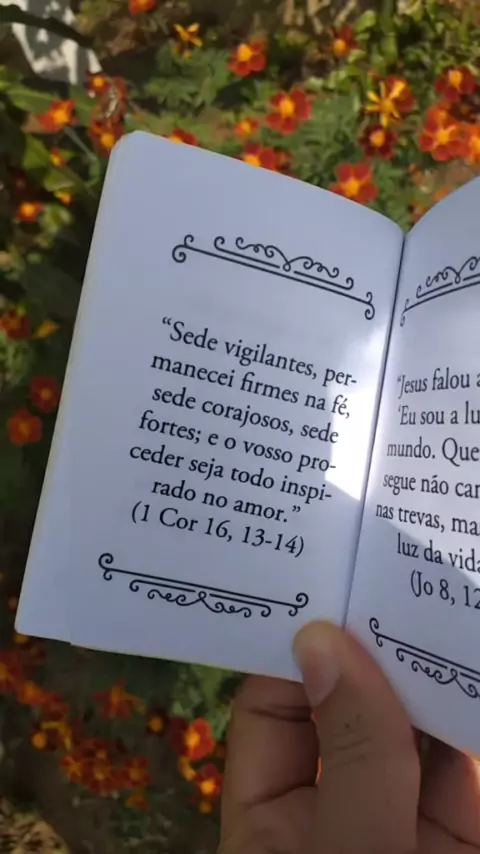 “Sede vigilantes, per-
manecei firmes na fé,
sede corajosos, sede
fortes; e o vosso pro-
ceder seja todo inspi-
rado no amor.”
(1 Cor 16, 13-14)
“Jesus falou
‘Eu sou a
mundo.
segue não
nas trevas,
luz da
(Jo 8,